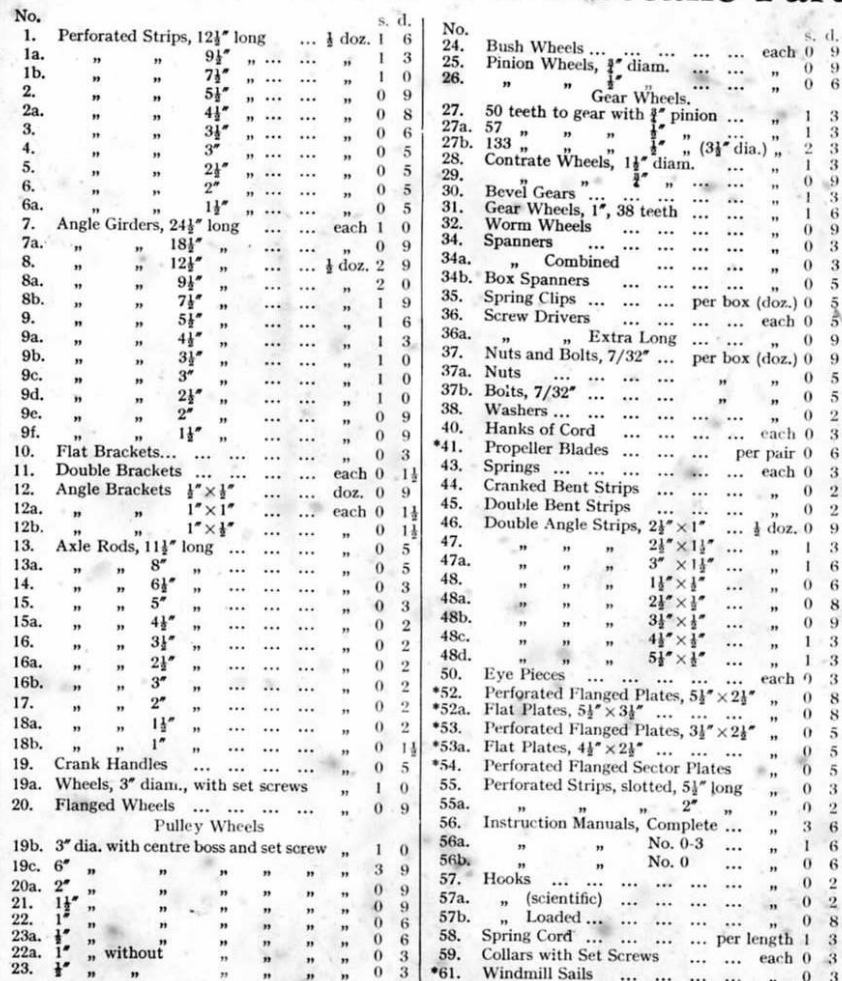 No. s. d.
1. Perforated Strips, 12½″ long ... ½ doz. 1 6
1a. „ „ 9½″ „ ... ... „ 1 3
1b. „ „ 7½″ „ ... ... „ 1 0
2. „ „ 5½″ „ ... ... „ 0 9
2a. „ „ 4½″ „ ... ... „ 0 8
3. „ „ 3½″ „ ... ... „ 0 6
4. „ „ 3″ „ ... ... „ 0 5
5. „ „ 2½″ „ ... ... „ 0 5
6. „ „ 2″ „ ... ... „ 0 5
6a. „ „ 1½″ „ ... ... „ 0 5
7. Angle Girders, 24½″ long ... ... each 1 0
7a. „ „ 18½″ „ ... ... „ 0 9
8. „ „ 12½″ „ ... ... ½ doz. 2 9
8a. „ „ 9½″ „ ... ... „ 2 0
8b. „ „ 7½″ „ ... ... „ 1 9
9. „ „ 5½″ „ ... ... „ 1 6
9a. „ „ 4½″ „ ... ... „ 1 3
9b. „ „ 3½″ „ ... ... „ 1 0
9c. „ „ 3″ „ ... ... „ 1 0
9d. „ „ 2½″ „ ... ... „ 1 0
9e. „ „ 2″ „ ... ... „ 0 9
9f. „ „ 1½″ „ ... ... „ 0 9
10. Flat Brackets... ... ... ... ... „ 0 3
11. Double Brackets ... ... ... each 0 1½
12. Angle Brackets ½″×½″ ... ... doz. 0 9
12a. „ „ 1″×1″ ... ... each 0 1½
12b. „ „ 1″×½″ ... ... „ 0 1½
13. Axle Rods, 11½″ long ... ... ... „ 0 5
13a. „ „ 8″ „ ... ... ... „ 0 5
14. „ „ 6½″ „ ... ... ... „ 0 3
15. „ „ 5″ „ ... ... ... „ 0 3
15a. „ „ 4½″ „ ... ... ... „ 0 2
16. „ „ 3½″ „ ... ... ... „ 0 2
16a. „ „ 2½″ „ ... ... ... „ 0 2
16b. „ „ 3″ „ ... ... ... „ 0 2
17. „ „ 2″ „ ... ... ... „ 0 2
18a. „ „ 1½″ „ ... ... ... „ 0 2
18b. „ „ 1″ „ ... ... ... „ 0 1½
19. Crank Handles ... ... ... ... „ 0 5
19a. Wheels, 3″ diam., with set screws „ 1 0
20. Flanged Wheels ... ... ... ... „ 0 9
Pulley Wheels
19b. 3″ dia. with centre boss and set screw „ 1 0
19c. 6″ „ „ „ „ „ „ 3 9
20a. 2″ „ „ „ „ „ „ 0 9
21. 1½″ „ „ „ „ „ „ 0 9
22. 1″ „ „ „ „ „ „ 0 6
23a. ½″ „ „ „ „ „ „ 0 6
22a. 1″ „ without „ „ „ „ 0 3
23. ½″ „ „ „ „ „ „ 0 3
No. s. d.
24. Bush Wheels ... ... ... ... each 0 9
25. Pinion Wheels, ¾″ diam. ... ... „ 0 9
26. „ „ ½″ „ ... ... „ 0 6
Gear Wheels.
27. 50 teeth to gear with ¾″ pinion ... „ 1 3
27a. 57 „ „ „ ½″ „ ... „ 1 3
27b. 133 „ „ „ ½″ „ (3½″ dia.) „ 2 3
28. Contrate Wheels, 1½″ diam. ... „ 1 3
29. „ „ ¾″ „ ... ... „ 0 9
30. Bevel Gears ... ... ... ... ... „ 1 3
31. Gear Wheels, 1″, 38 teeth ... ... „ 1 6
32. Worm Wheels ... ... ... ... „ 0 9
34. Spanners ... ... ... ... ... „ 0 3
34a. „ Combined ... ... ... „ 0 3
34b. Box Spanners ... ... ... ... „ 0 5
35. Spring Clips ... ... ... per box (doz.) 0 5
36. Screw Drivers ... ... ... ... each 0 5
36a. „ „ Extra Long ... ... „ 0 9
37. Nuts and Bolts, 7/32″ ... per box (doz.) 0 9
37a. Nuts ... ... ... ... „ „ 0 5
37b. Bolts, 7/32″ ... ... ... „ „ 0 5
38. Washers ... ... ... ... ... ... „ 0 2
40. Hanks of Cord ... ... ... each 0 3
*41. Propeller Blades ... ... per pair 0 6
43. Springs ... ... ... ... ... each 0 3
44. Cranked Bent Strips ... ... ... „ 0 2
45. Double Bent Strips ... ... ... „ 0 2
46. Double Angle Strips, 2½″×1″ ... ½ doz. 0 9
47. „ „ „ 2½″×1½″ ... „ 1 3
47a. „ „ „ 3″ ×1½″ ... „ 1 6
48. „ „ „ 1½″×½″ ... „ 0 6
48a. „ „ „ 2½″×½″ ... „ 0 8
48b. „ „ „ 3½″×½″ ... „ 0 9
48c. „ „ „ 4½″×½″ ... „ 1 3
48d. „ „ „ 5½″×½″ ... „ 1 3
50. Eye Pieces ... ... ... ... ... each 0 3
*52. Perforated Flanged Plates, 5½″×2½″ „ 0 8
*52a. Flat Plates, 5½″×3½″ ... ... ... „ 0 8
*53. Perforated Flanged Plates, 3½″×2½″ „ 0 5
*53a. Flat Plates, 4½″×2½″ ... ... ... „ 0 5
*54. Perforated Flanged Sector Plates „ 0 5
55. Perforated Strips, slotted, 5½″ long „ 0 3
55a. „ „ „ 2″ „ „ 0 2
56. Instruction Manuals, Complete ... „ 3 6
56a. „ „ No. 0-3 ... „ 1 6
56b. „ „ No. 0 ... „ 0 6
57. Hooks ... ... ... ... ... ... „ 0 2
57a. „ (scientific) ... ... ... ... „ 0 2
57b. „ Loaded ... ... ... ... ... „ 0 8
58. Spring Cord ... ... ... ... per length 1 3
59. Collars with Set Screws ... ... each 0 3
*61. Windmill Sails ... ... ... ... „ 0 3